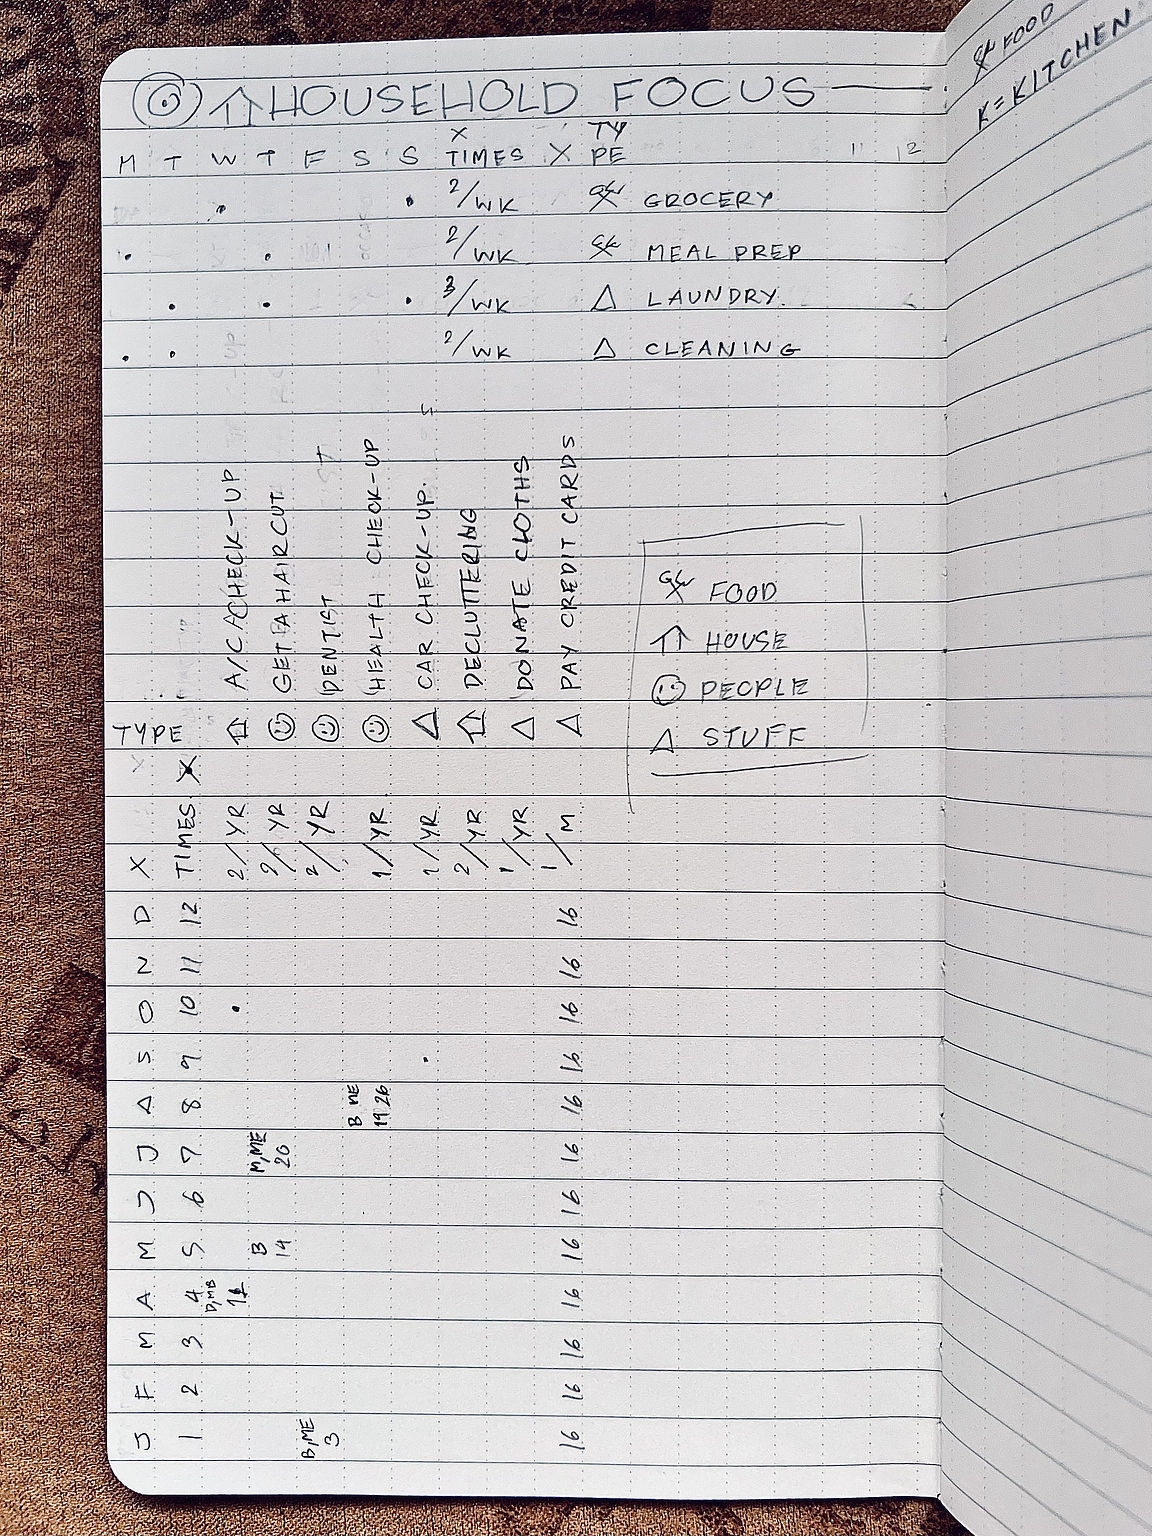 HOUSEHOLD FOCUS
X TY
M T W T F S S TIMES X PE 11 12
• • 2/WK GROCERY
• • 2/WK MEAL PREP
• • • 3/WK △ LAUNDRY
• • 2/WK △ CLEANING
J F M A M J J A S O N D X TYPE
1 2 3 4 5 6 7 8 9 10 11 12 TIMES X
D,MB 11 • 2/YR A/C CHECK-UP
B 14 M,ME 20 2/YR GET A HAIRCUT
B,ME 3 2/YR DENTIST
B 19 ME 26 1/YR HEALTH CHECK-UP
• 1/YR △ CAR CHECK-UP.
2/YR DECLUTTERING
1/YR △ DONATE CLOTHS
16 16 16 16 16 16 16 16 16 16 16 16 1/M △ PAY CREDIT CARDS
FOOD
HOUSE
PEOPLE
△ STUFF
FOOD
K=KITCHEN